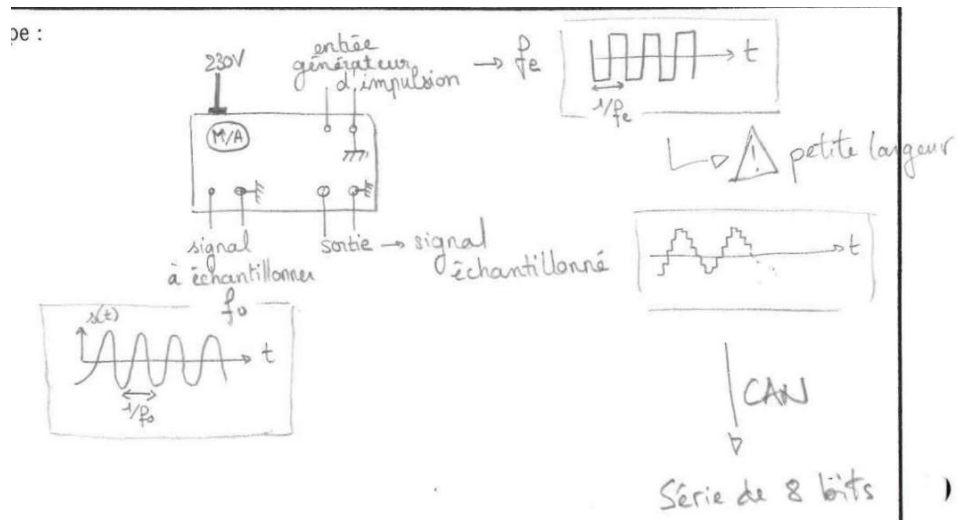 pe :
230V
entrée
générateur
d'impulsion → fe
t
1/fe
M/A
petite largeur
!
signal
à échantillonner
f₀
sortie → signal
échantillonné
t
s(t)
t
1/f₀
CAN
Série de 8 bits
)